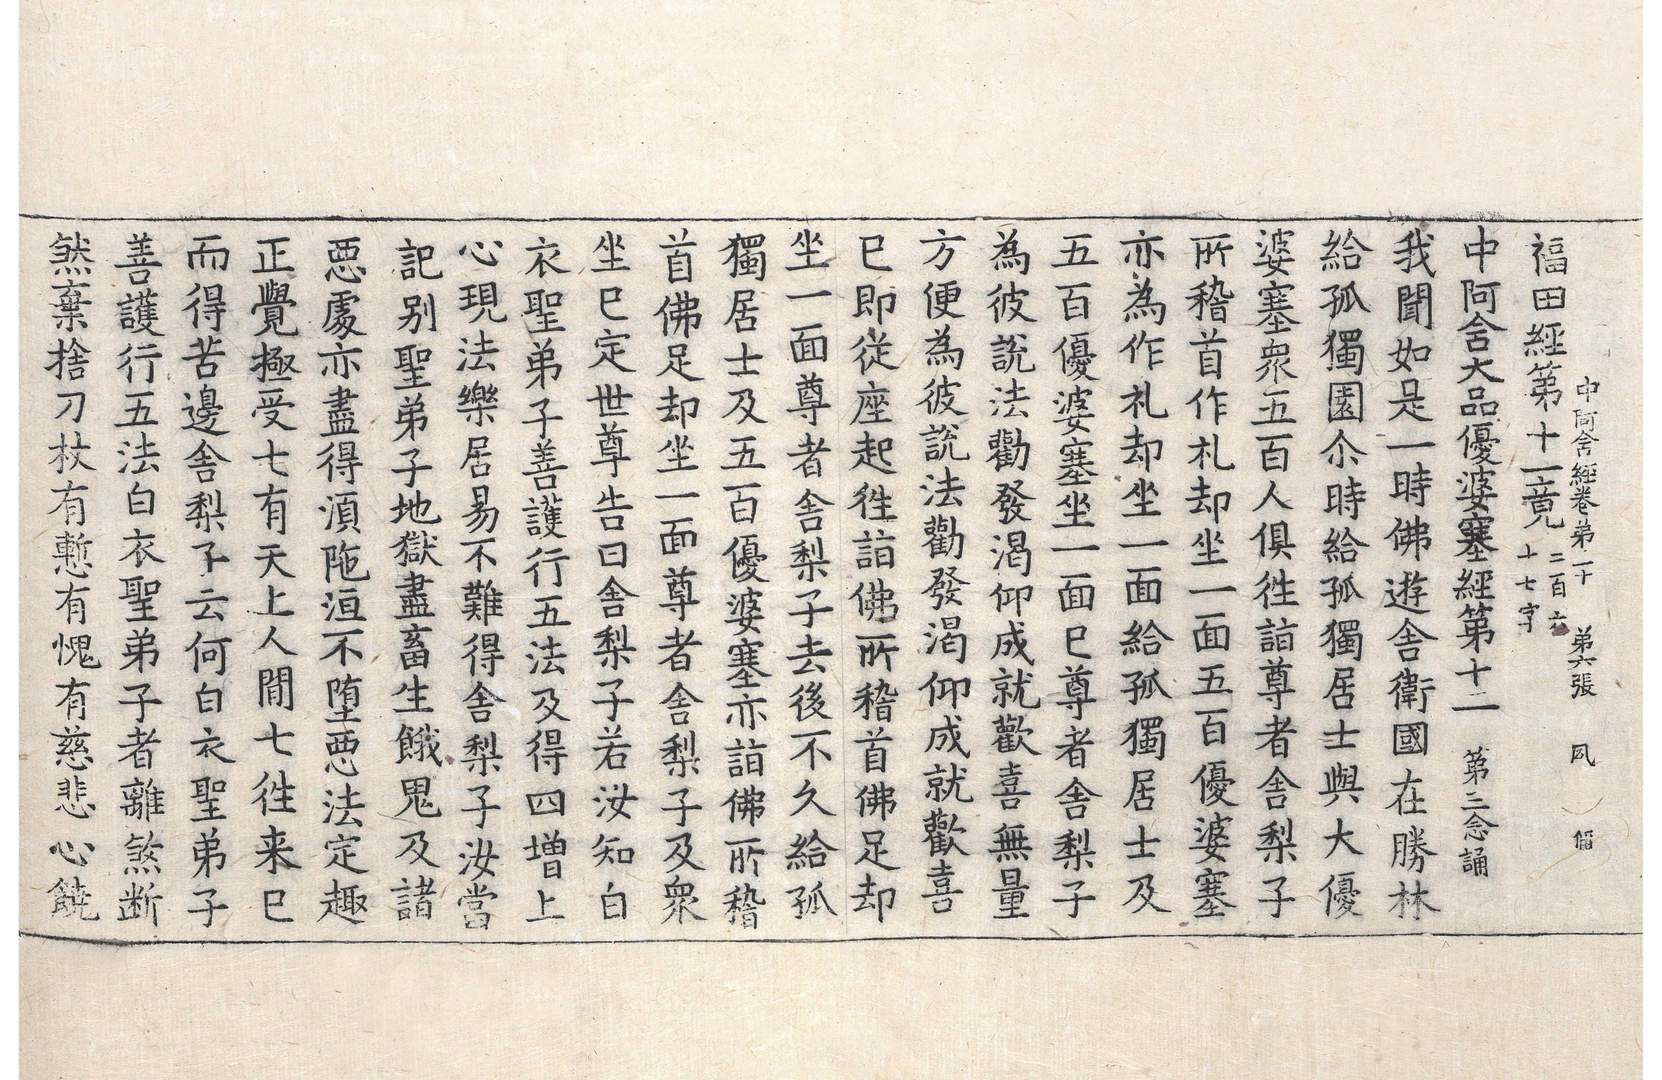 中阿含經卷弟三十　弟六張　夙
福田經第十一竟 二百六十七字
中阿含大品優婆塞經第十二　第三念誦
我聞如是一時佛遊舍衛國在勝林
給孤獨園尒時給孤獨居士與大優
婆塞衆五百人俱往詣尊者舍梨子
所稽首作札却坐一面五百優婆塞
亦為作礼却坐一面給孤獨居士及
五百優婆塞坐一面已尊者舍梨子
為彼說法勸發渴仰成就歡喜無量
方便為彼說法勸發渴仰成就歡喜
已即從座起往詣佛所稽首佛足却
坐一面尊者舍梨子去後不久給孤
獨居士及五百優婆塞亦詣佛所稽
首佛足却坐一面尊者舍梨子及衆
坐已定世尊告曰舍梨子若汝知白
衣聖弟子善護行五法及得四增上
心現法樂居易不難得舍梨子汝當
記別聖弟子地獄盡畜生餓鬼及諸
惡處亦盡得湏陁洹不堕惡法定趣
正覺極受七有天上人間七往来已
而得苦邊舍梨子云何白衣聖弟子
善護行五法白衣聖弟子者離煞断
煞棄捨刀杖有慙有愧有慈悲心饒